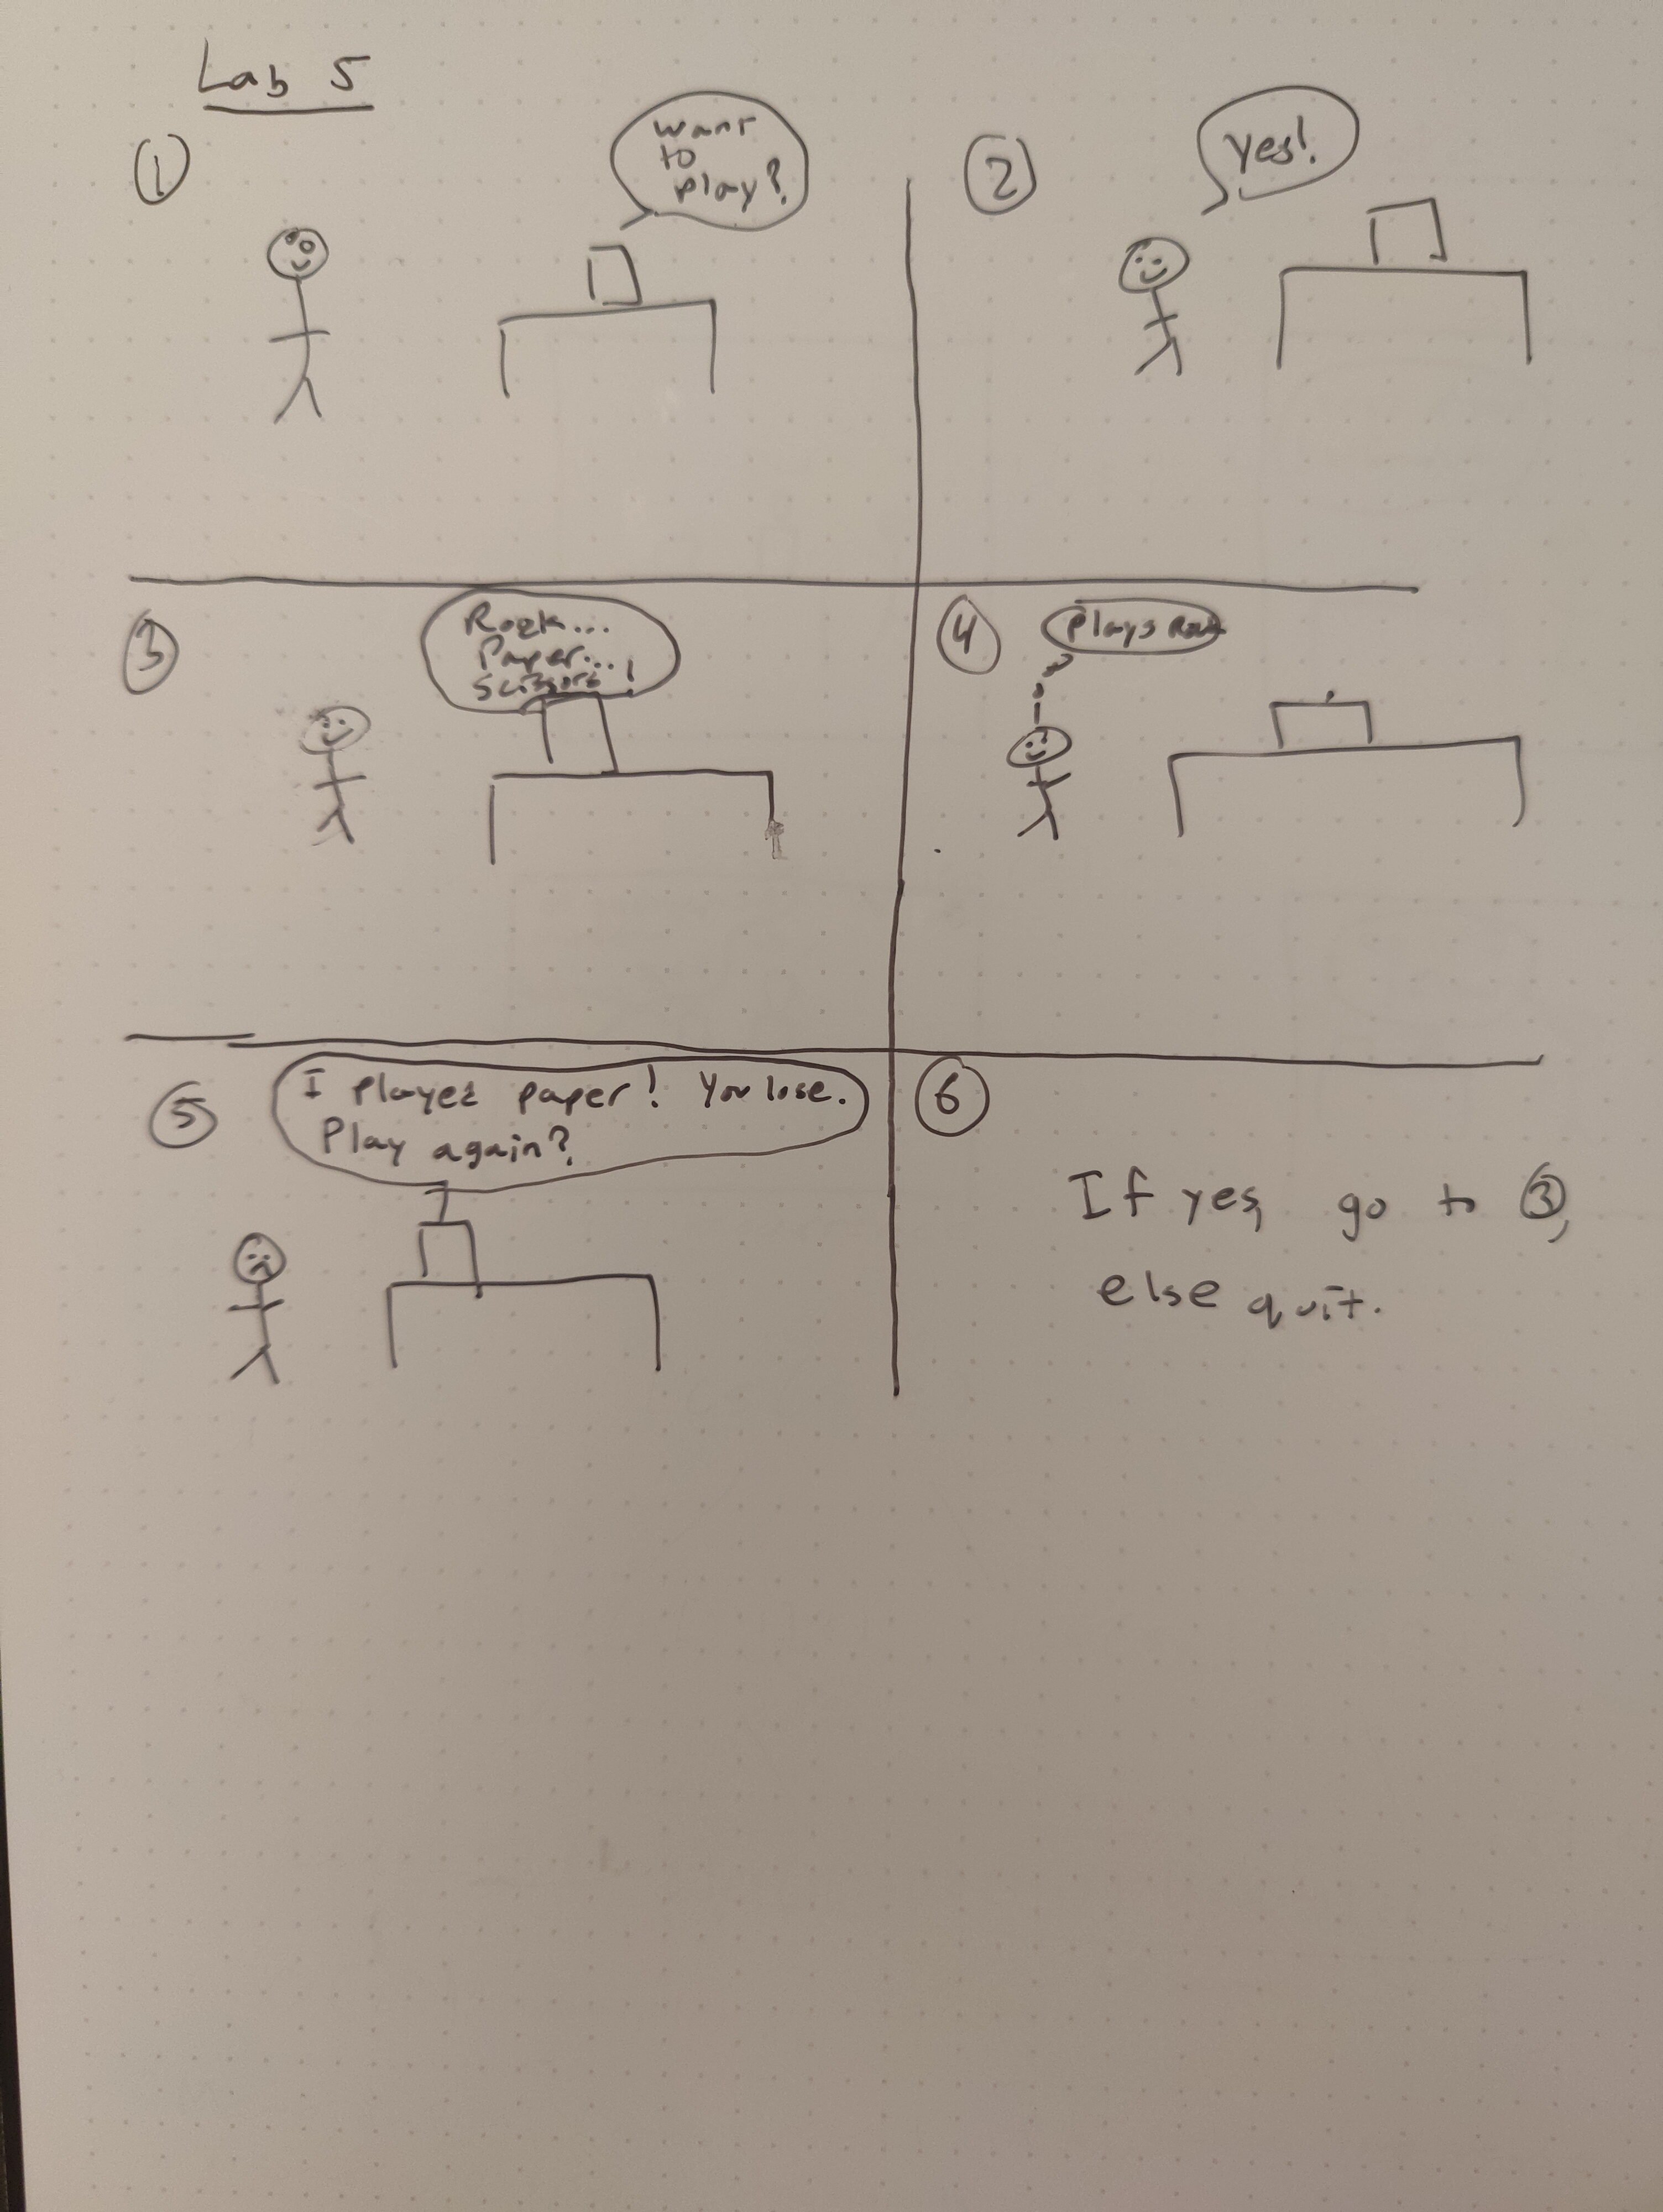 Lab 5
1
want
to
play?
2
yes!
3
Rock...
Paper...
Scissors!
4
Plays Rock
5
I played paper! You lose.
Play again?
6
If yes, go to 3,
else quit.